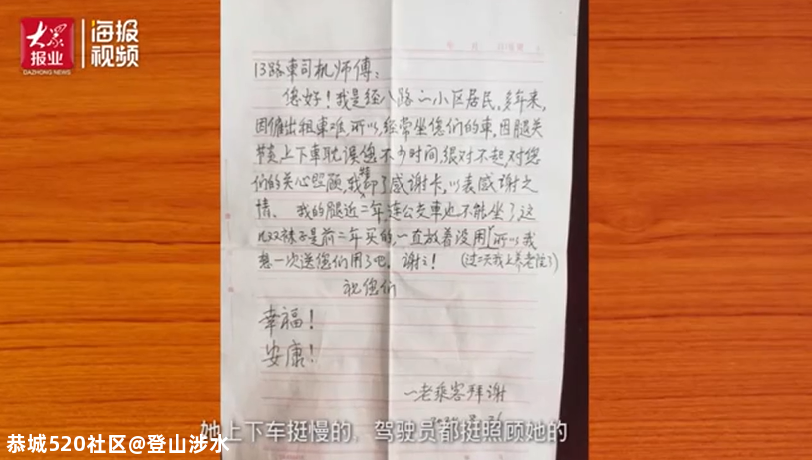 大众报业
DAZHONG NEWS
海报视频
13路車司机师傅:
您好!我是经八路一小区居民,多年来,
因僱出租車难,所以,经常坐您们的車,因腿关
节炎上下車耽误您不少时间,很对不起,对您
们的关心照顾,我特印了感谢卡,以表感谢之
情、我的腿近二年连公交車也不能坐了,这
几双袜子是前二年买的,一直放着没用,所以我
想一次送您们用了吧。谢谢!(过二天我上养老院了)
祝您们
幸福!
安康!
一老乘客拜谢
她上下车挺慢的,驾驶员都挺照顾她的
恭城520社区@登山涉水